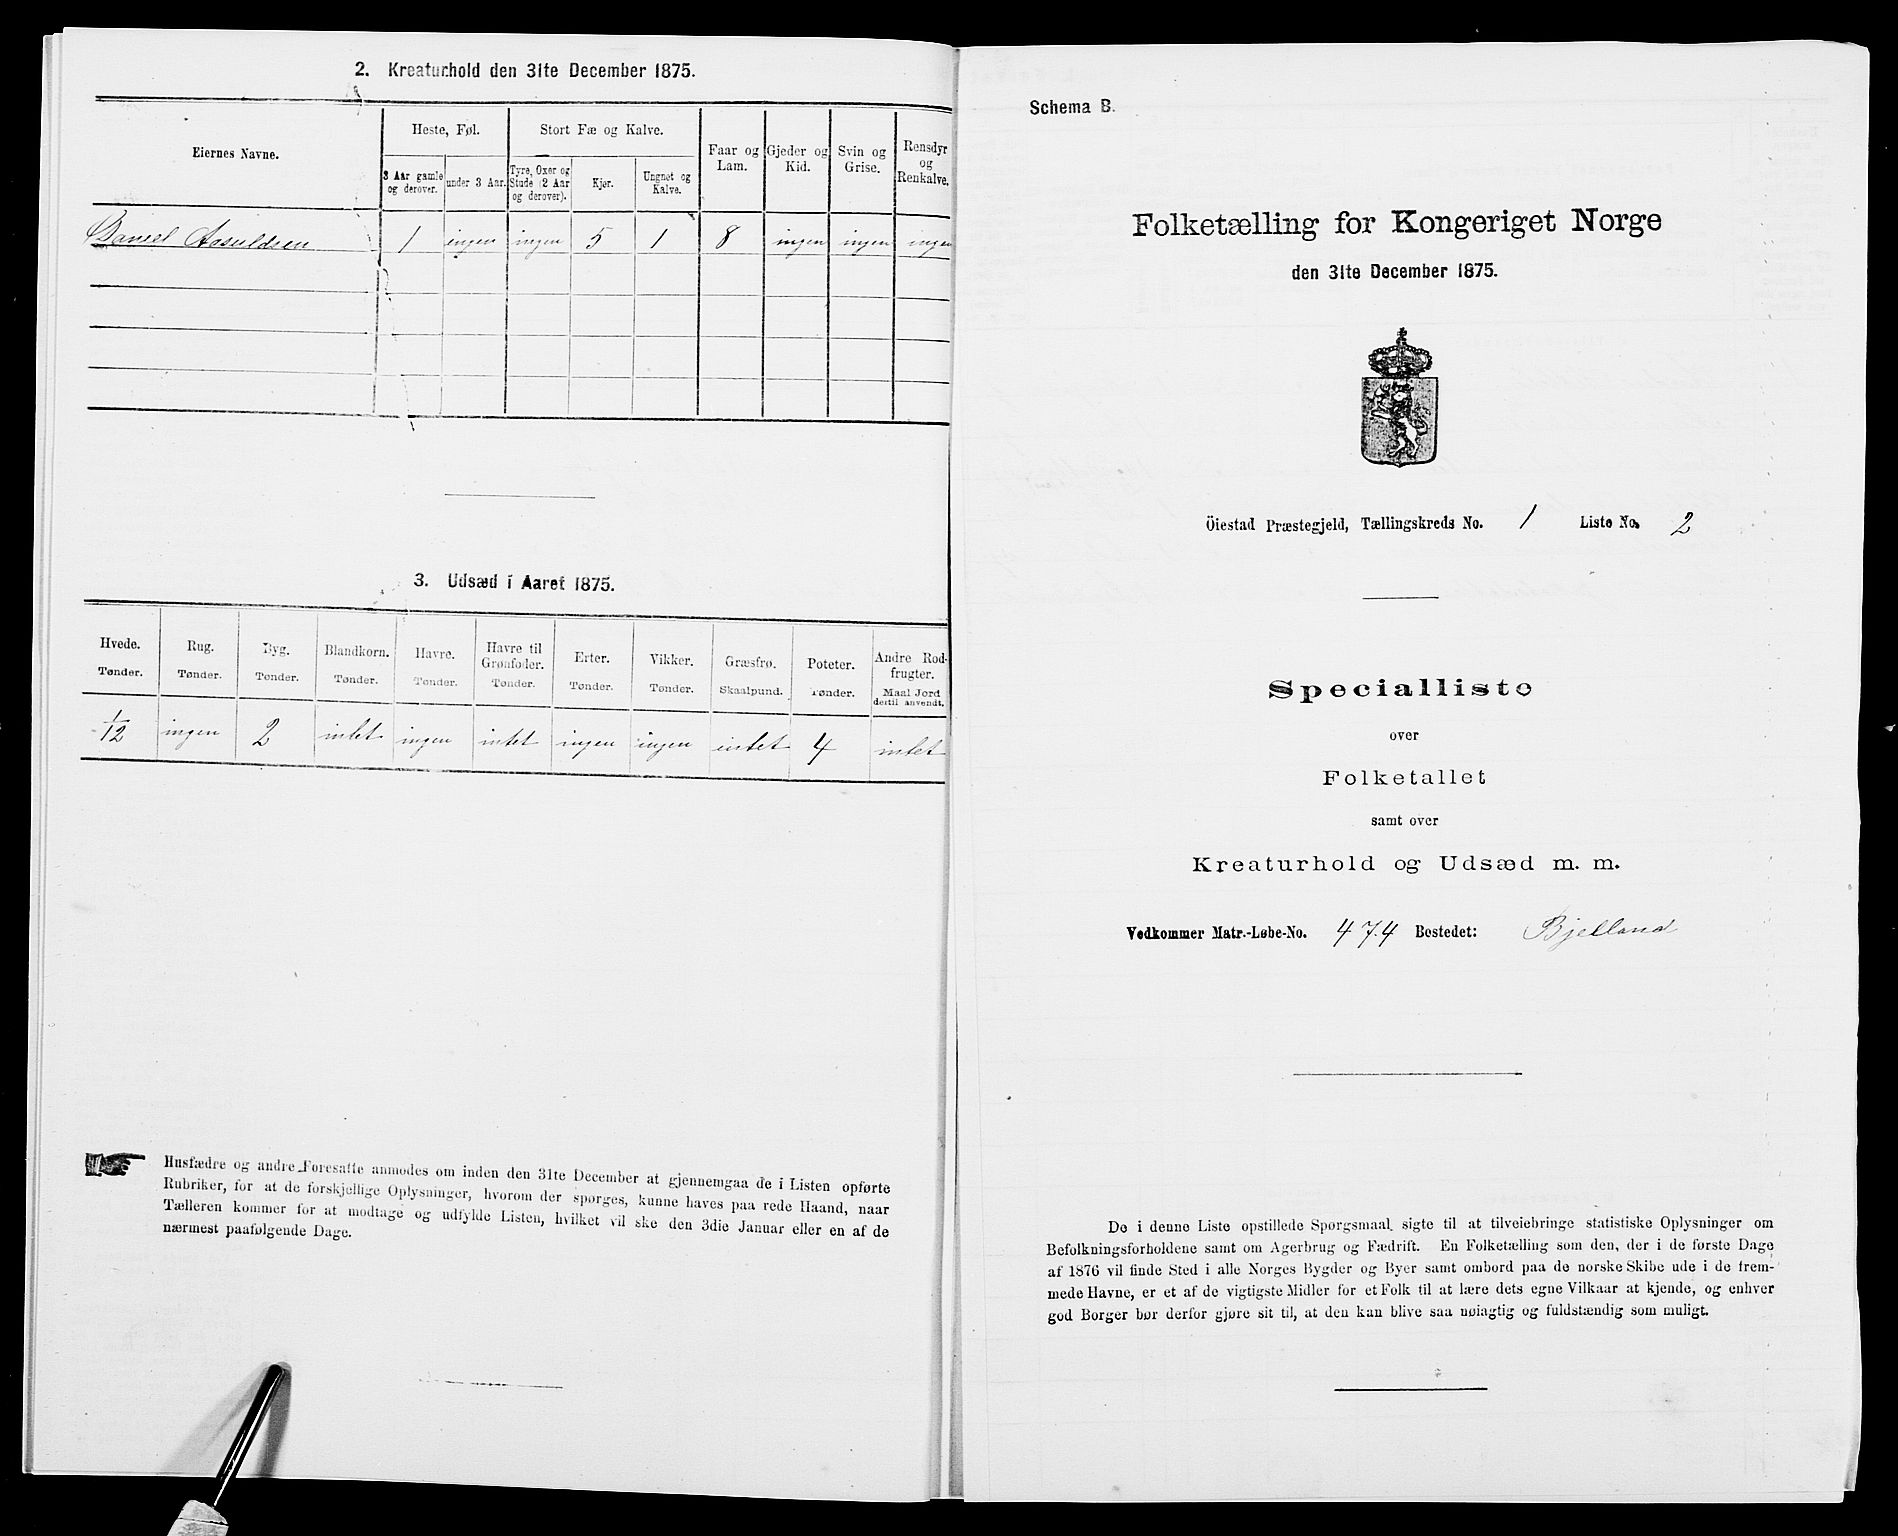 2. Kreaturhold den 31te December 1875.
Eiernes Navne.
Heste, Føl.
Stort Fæ og Kalve.
Faar og Lam.
Gjeder og Kid.
Svin og Grise.
Rensdyr og Renkalve.
3 Aar gamle og derover.
under 3 Aar.
Tyre, Oxer og Stude (2 Aar og derover).
Kjør.
Ungnet og Kalve.
Daniel Aasuldsen 1 ingen ingen 5 1 8 ingen ingen ingen
3. Udsæd i Aaret 1875.
Hvede. Rug. Byg. Blandkorn. Havre. Havre til Grønfoder. Erter. Vikker. Græsfrø. Poteter. Andre Rodfrugter.
Tønder. Tønder. Tønder. Tønder. Tønder. Tønder. Tønder. Tønder. Skaalpund. Tønder. Maal Jord dertil anvendt.
1/12 ingen 2 intet ingen intet ingen ingen intet 4 intet
Husfædre og andre Foresatte anmodes om inden den 31te December at gjennemgaa de i Listen opførte
Rubriker, for at de forskjellige Oplysninger, hvorom der spørges, kunne haves paa rede Haand, naar
Tælleren kommer for at modtage og udfylde Listen, hvilket vil ske den 3die Januar eller en af de
nærmest paafølgende Dage.
Schema B.
Folketælling for Kongeriget Norge
den 31te December 1875.
Öiestad Præstegjeld, Tællingskreds No. 1 Liste No. 2
Specialliste
over
Folketallet
samt over
Kreaturhold og Udsæd m. m.
Vedkommer Matr.-Løbe-No. 474 Bostedet: Bjelland
De i denne Liste opstillede Spørgsmaal sigte til at tilveiebringe statistiske Oplysninger om
Befolkningsforholdene samt om Agerbrug og Fædrift. En Folketælling som den, der i de første Dage
af 1876 vil finde Sted i alle Norges Bygder og Byer samt ombord paa de norske Skibe ude i de frem-
mede Havne, er et af de vigtigste Midler for et Folk til at lære dets egne Vilkaar at kjende, og enhver
god Borger bør derfor gjøre sit til, at den kan blive saa nøiagtig og fuldstændig som muligt.